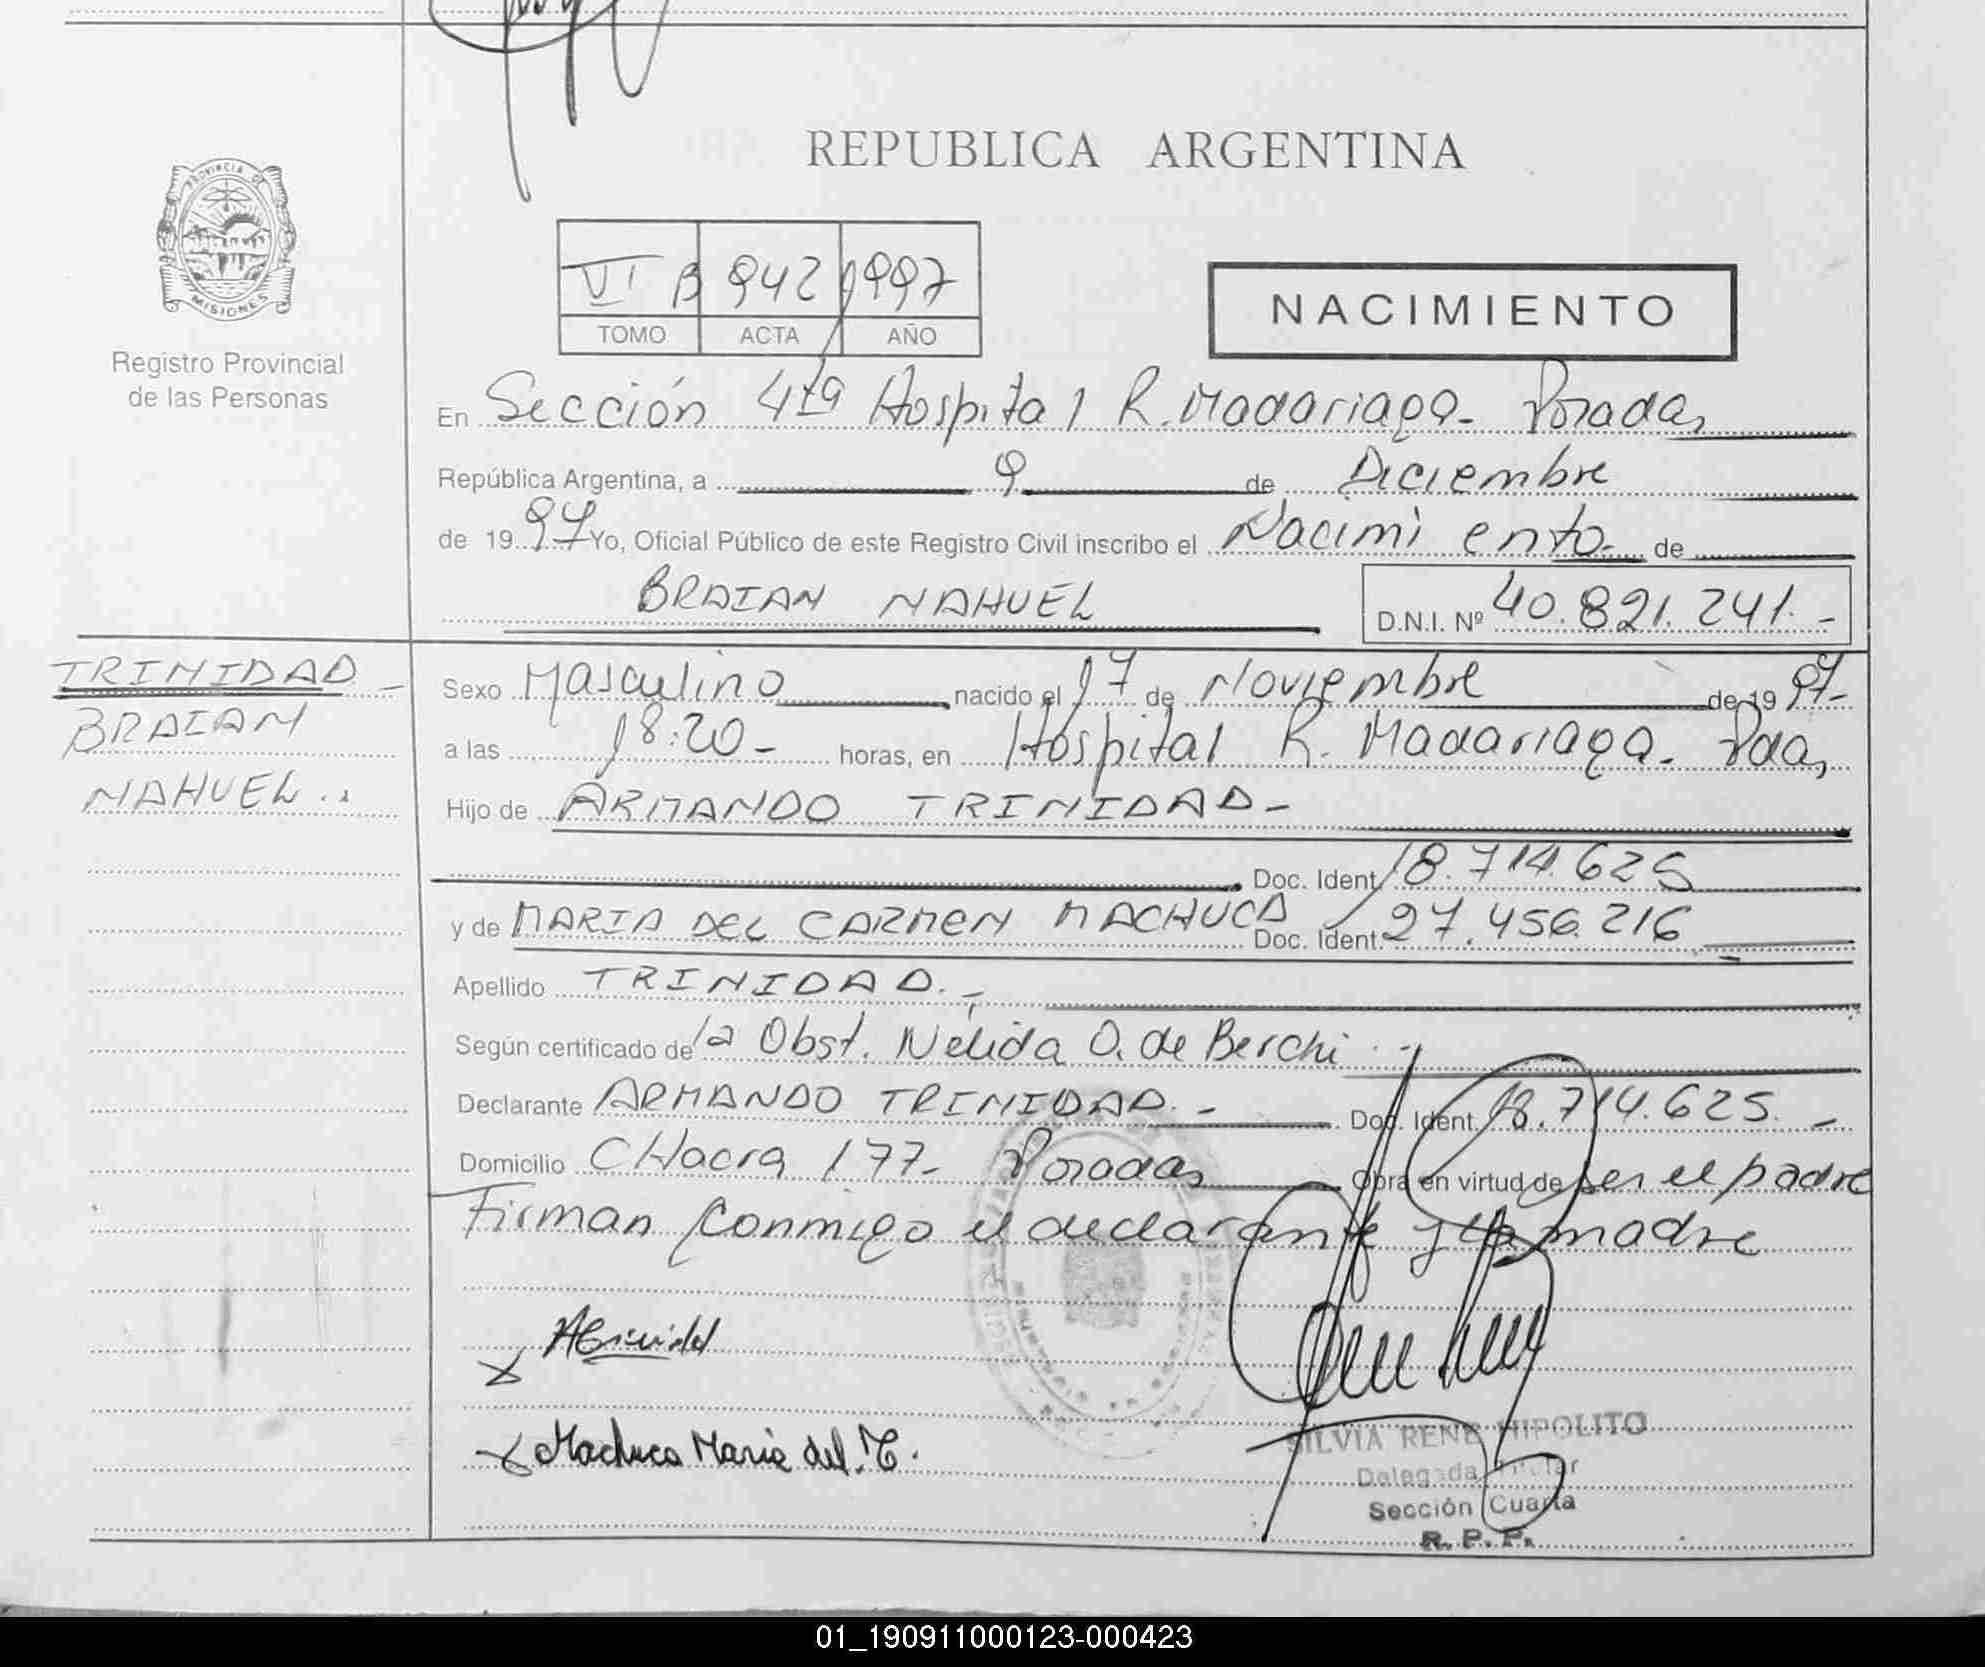 REPUBLICA ARGENTINA
PROVINCIA DE
MISIONES
Registro Provincial
de las Personas
VI B 942 1997
TOMO ACTA AÑO
NACIMIENTO
En Sección 4ta Hospital R. Madariaga - Posadas
República Argentina, a 9 de Diciembre
de 1997 Yo, Oficial Público de este Registro Civil inscribo el Nacimiento - de
BRAIAN NAHUEL D.N.I. Nº 40.821.241.-
TRINIDAD -
BRAIAN
NAHUEL..
Sexo Masculino nacido el 17 de Noviembre de 1997-
a las 18:20- horas, en Hospital R. Madariaga. Pdas,
Hijo de ARMANDO TRINIDAD-
Doc. Ident. 18.714.625
y de MARIA DEL CARMEN MACHUCA Doc. Ident. 27.456.216
Apellido TRINIDAD.-
Según certificado de la Obst. Nélida O. de Berchi.-
Declarante ARMANDO TRINIDAD.- Doc. Ident. 18.714.625.-
Domicilio CHacra 177- Posadas Obra en virtud de ser el padre
Firman conmigo el declarante y la madre
Machuca Maria del. C.
SILVIA RENE HIPOLITO
Delegada Titular
Sección Cuarta
R. P. P.
01_190911000123-000423